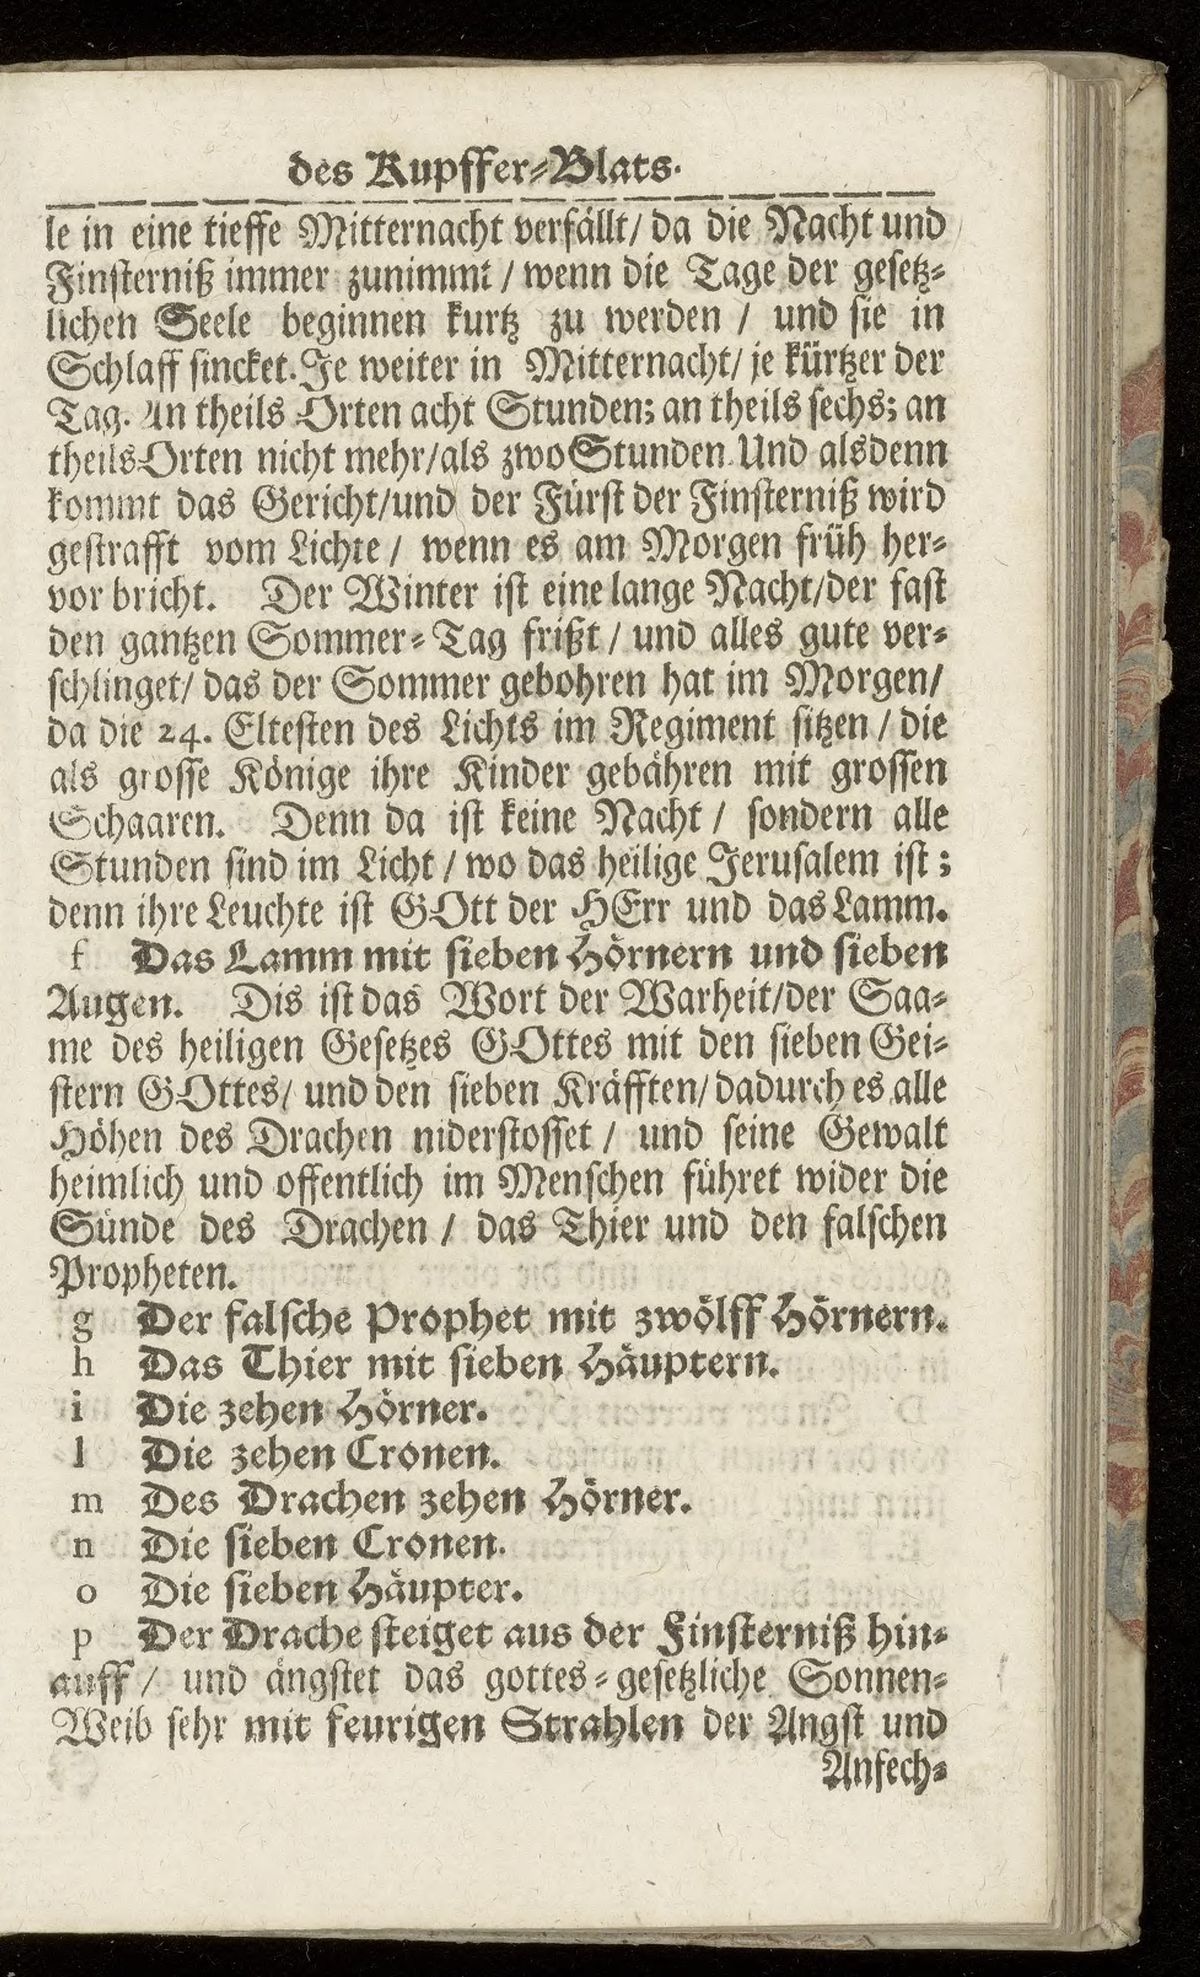 des Kupffer-Blats.
le in eine tieffe Mitternacht verfällt/ da die Nacht und
Finsterniß immer zunimmt / wenn die Tage der gesetz-
lichen Seele beginnen kurtz zu werden / und sie in
Schlaff sincket. Je weiter in Mitternacht/ je kürtzer der
Tag. An theils Orten acht Stunden; an theils sechs; an
theils Orten nicht mehr/als zwo Stunden. Und alsdenn
kommt das Gericht/und der Fürst der Finsterniß wird
gestrafft vom Lichte / wenn es am Morgen früh her-
vor bricht. Der Winter ist eine lange Nacht/der fast
den gantzen Sommer-Tag frißt / und alles gute ver-
schlinget/ das der Sommer gebohren hat im Morgen/
da die 24. Eltesten des Lichts im Regiment sitzen / die
als grosse Könige ihre Kinder gebähren mit grossen
Schaaren. Denn da ist keine Nacht / sondern alle
Stunden sind im Licht / wo das heilige Jerusalem ist;
denn ihre Leuchte ist GOtt der HErr und das Lamm.
f Das Lamm mit sieben Hörnern und sieben
Augen. Dis ist das Wort der Warheit/der Saa-
me des heiligen Gesetzes GOttes mit den sieben Gei-
stern GOttes/ und den sieben Kräfften/ dadurch es alle
Höhen des Drachen niderstosset / und seine Gewalt
heimlich und offentlich im Menschen führet wider die
Sünde des Drachen / das Thier und den falschen
Propheten.
g Der falsche Prophet mit zwölff Hörnern.
h Das Thier mit sieben Häuptern.
i Die zehen Hörner.
l Die zehen Cronen.
m Des Drachen zehen Hörner.
n Die sieben Cronen.
o Die sieben Häupter.
p Der Drache steiget aus der Finsterniß hin-
auff / und ängstet das gottes-gesetzliche Sonnen-
Weib sehr mit feurigen Strahlen der Angst und
Anfech-